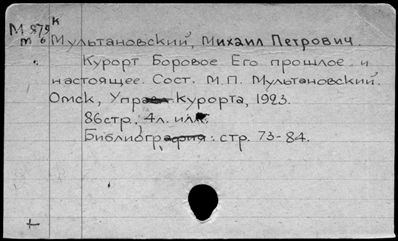 М 579 к
т 6 Мультановский, Михаил Петрович.
Курорт Боровое Его прошлое и
настоящее. Сост. М.П. Мультановский.
Омск, Управ. Курорта, 1923.
86 стр., 4 л. илл.
Библиография: стр. 73-84.
+